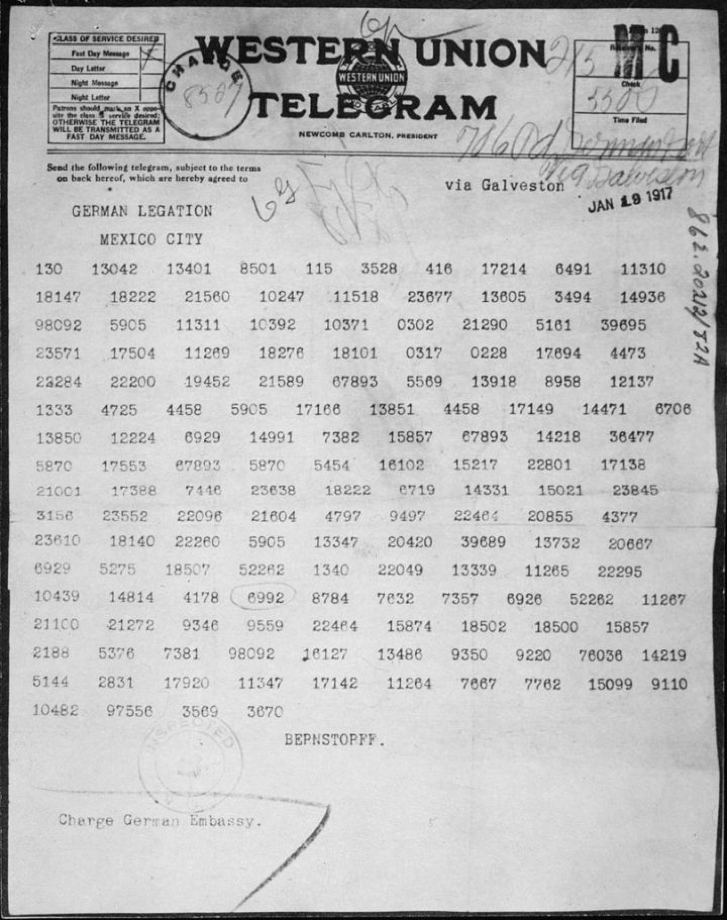 CLASS OF SERVICE DESIRED
Fast Day Message X
Day Letter
Night Message
Night Letter
Patrons should mark an X oppo-
site the class of service desired;
OTHERWISE THE TELEGRAM
WILL BE TRANSMITTED AS A
FAST DAY MESSAGE.
CHARGE
WESTERN UNION
WESTERN UNION
TELEGRAM
NEWCOMB CARLTON, PRESIDENT
MC
Receiver's No.
Check
Time Filed
Send the following telegram, subject to the terms
on back hereof, which are hereby agreed to
via Galveston
Via Galveston
JAN 19 1917
GERMAN LEGATION
MEXICO CITY
130 13042 13401 8501 115 3528 416 17214 6491 11310
18147 18222 21560 10247 11518 23677 13605 3494 14936
98092 5905 11311 10392 10371 0302 21290 5161 39695
23571 17504 11269 18276 18101 0317 0228 17694 4473
22284 22200 19452 21589 67893 5569 13918 8958 12137
1333 4725 4458 5905 17166 13851 4458 17149 14471 6706
13850 12224 6929 14991 7382 15857 67893 14218 36477
5870 17553 67893 5870 5454 16102 15217 22801 17138
21001 17388 7446 23638 18222 6719 14331 15021 23845
3156 23552 22096 21604 4797 9497 22464 20855 4377
23610 18140 22260 5905 13347 20420 39689 13732 20667
6929 5275 18507 52262 1340 22049 13339 11265 22295
10439 14814 4178 6992 8784 7632 7357 6926 52262 11267
21100 21272 9346 9559 22464 15874 18502 18500 15857
2188 5376 7381 98092 16127 13486 9350 9220 76036 14219
5144 2831 17920 11347 17142 11264 7667 7762 15099 9110
10482 97556 3569 3670
BERNSTOPFF.
INSPECTED
Charge German Embassy.
862.20212/82A